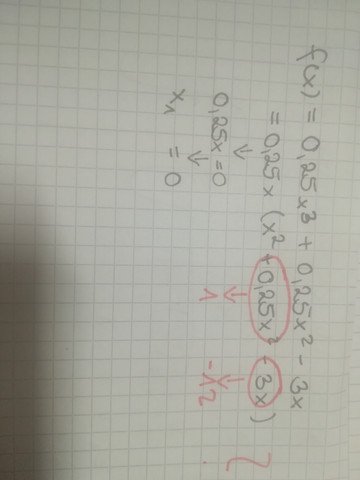 f(x) = 0,25x³ + 0,25x² - 3x
= 0,25x (x² + 0,25x² - 3x)
↓ ↓ ↓
0,25x=0 1 -12 ?
↓
x₁ = 0